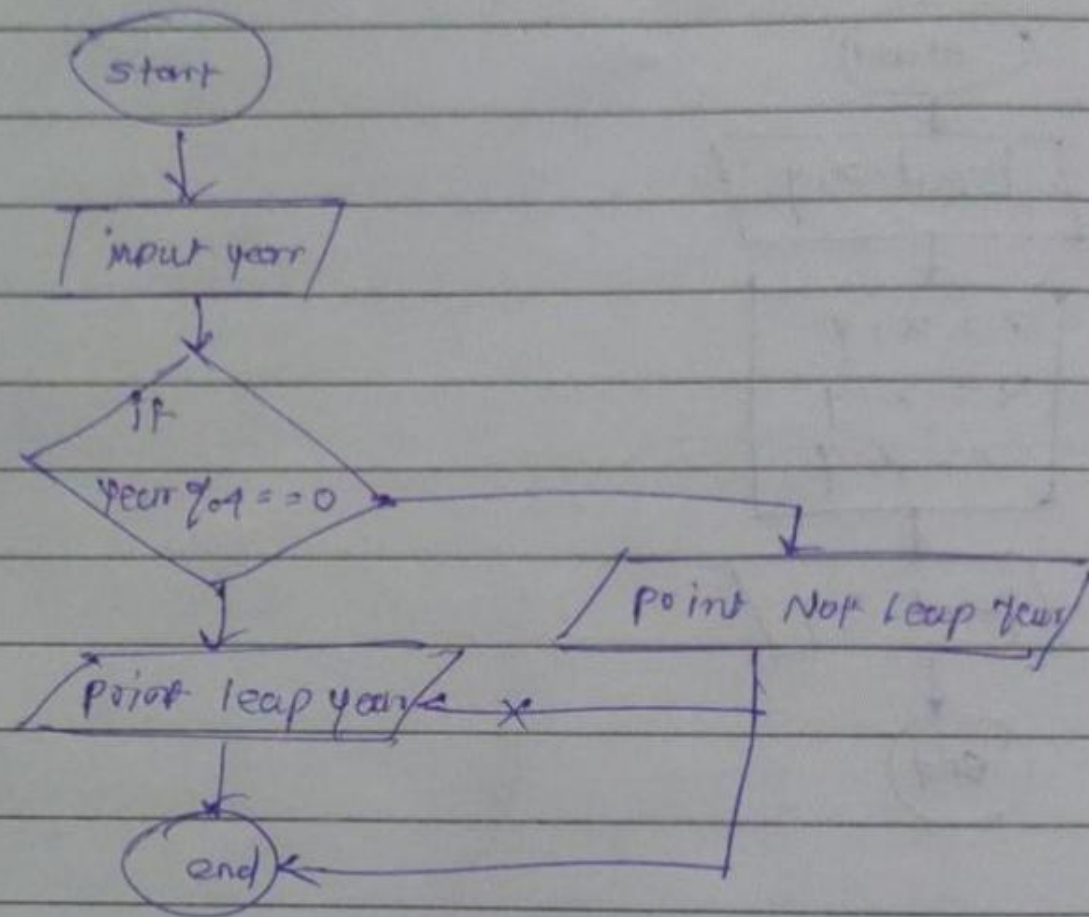 start
input year
If
year % 4 == 0
Print Not Leap Year
Print leap year
x
end